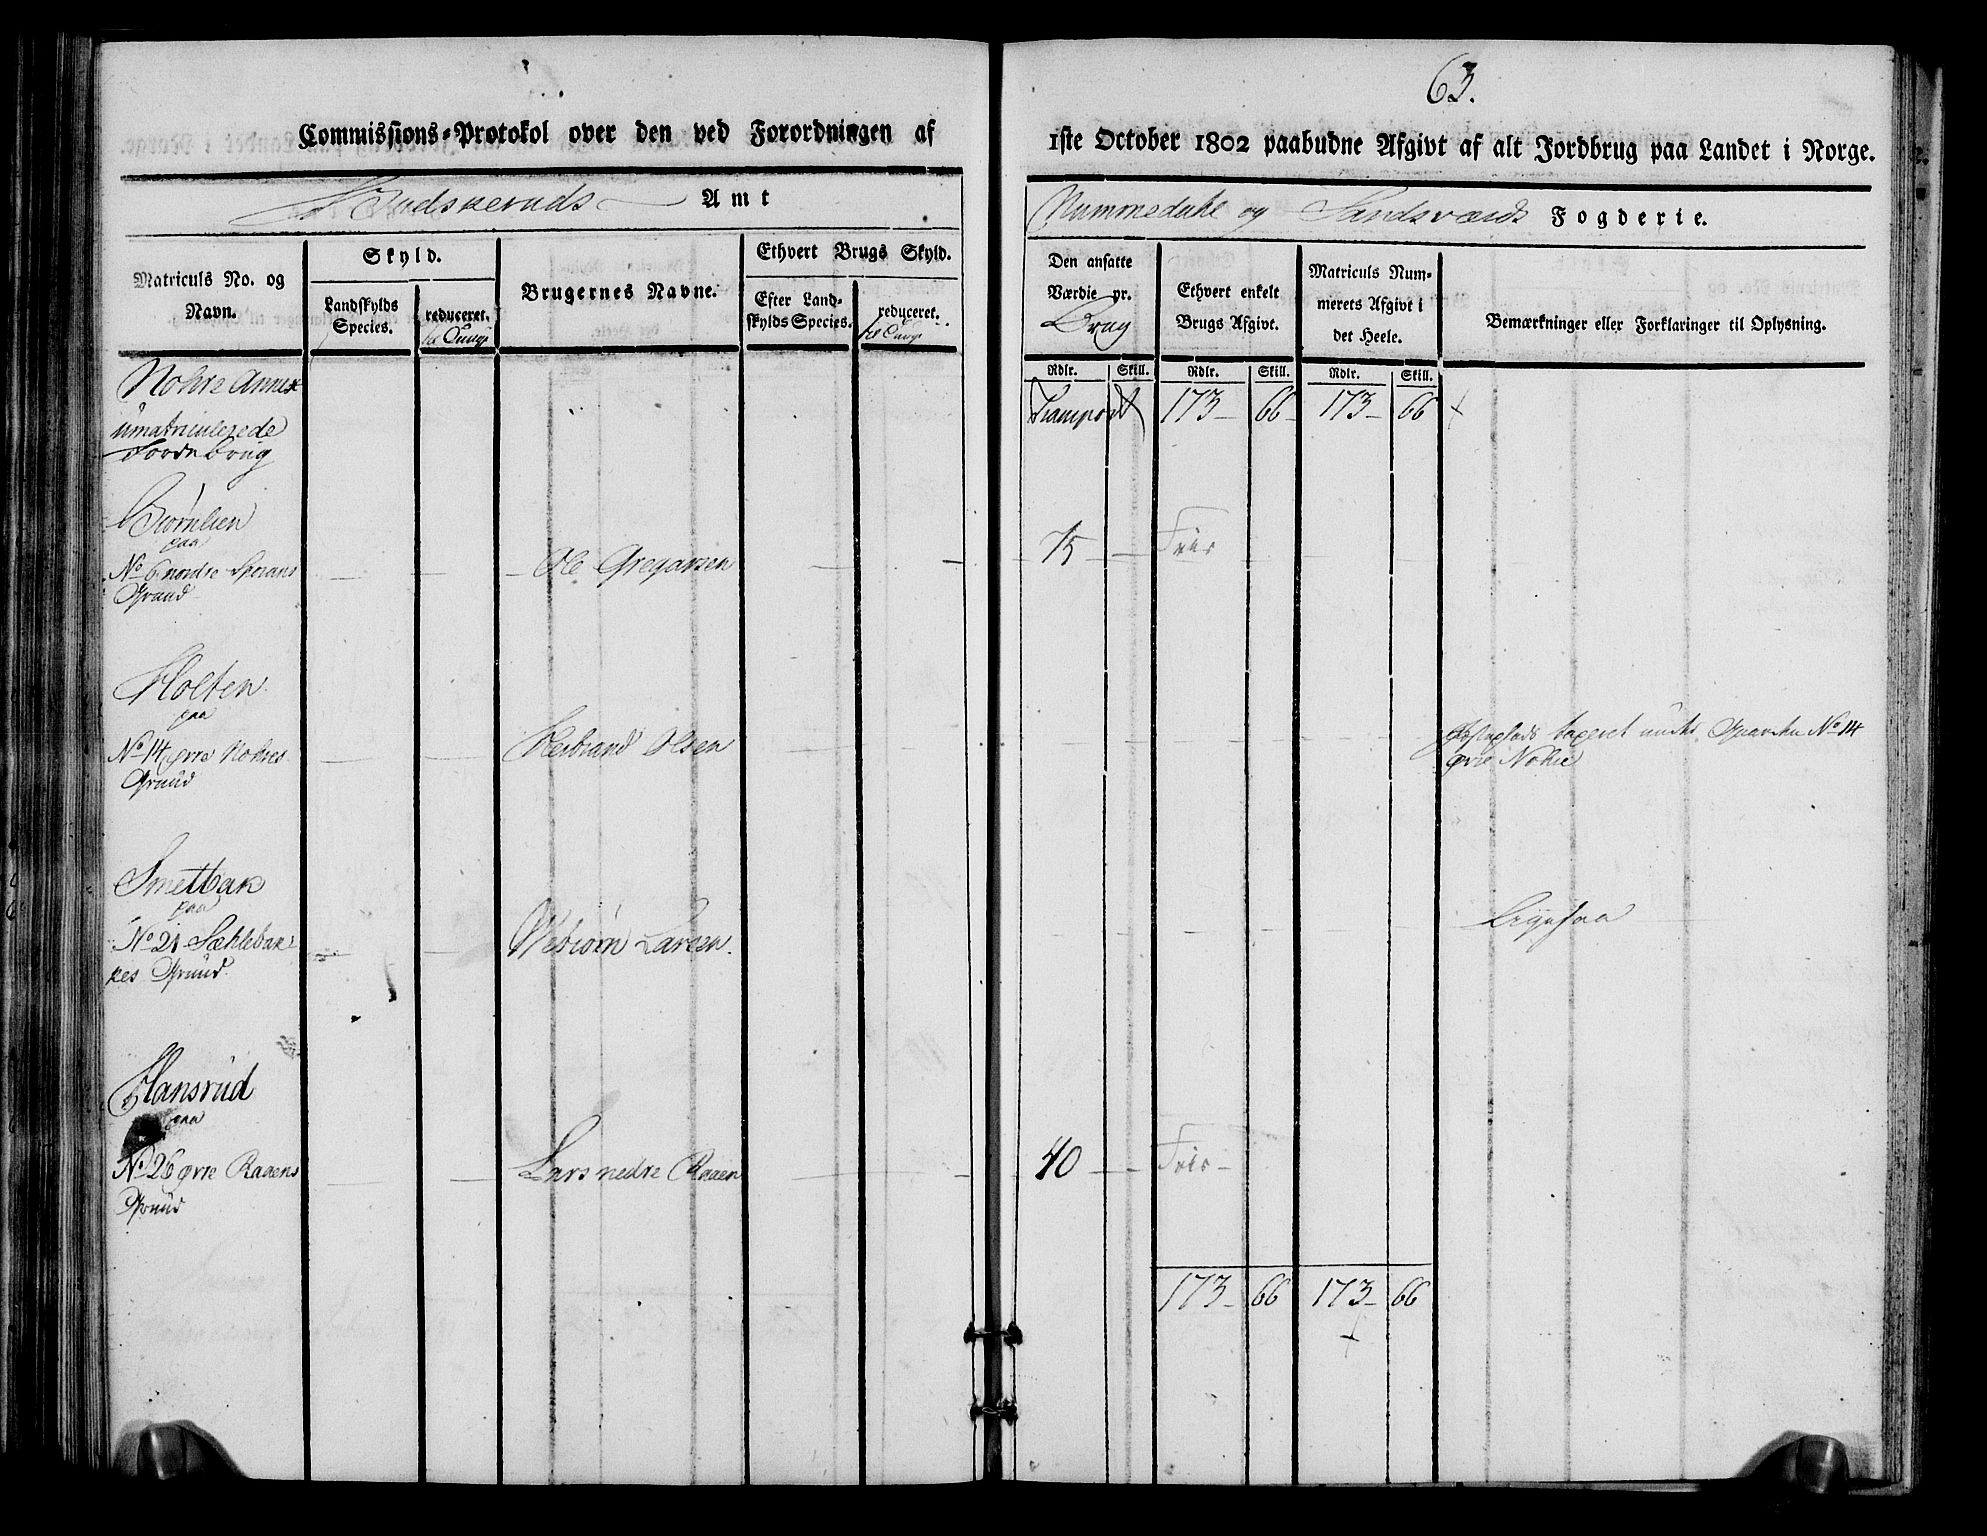 63.
Commissions-Protokol over den ved Forordningen af 1ste October 1802 paabudne Afgivt af alt Jordbrug paa Landet i Norge.
Budskeruds Amt
Nummedahl og Sandsværds Fogderie.
Matriculs No. og Navn.
Skyld.
Landskylds Species.
reduceret. til Tunge
Brugernes Navne.
Ethvert Brugs Skyld.
Efter Landskylds Species.
reduceret. til Tunge
Den ansatte Værdie pr. Brug
Ethvert enkelt Brugs Afgivt.
Matriculs Nummerets Afgivt i det Heele.
Bemærkninger eller Forklaringer til Oplysning.
Rdlr. Skill. Rdlr. Skill. Rdlr. Skill.
Nohre Annex
umatriculerede
Jordebrug
Transport 173 66 173 66
Biørnlien
paa
No 6 nordre
Grund
Ole Gregarsen
75 Frie
Holten
paa
No 14 øvre Nohres
Grund
Herbrand Olsen
taxeret under Gaarden No 14
øvre Nohre
Smetbak
paa
No 21 Sæhlebak
kes Grund
Vebiørn Larsen.
Ligesaa
Hansrud
paa
No 26 øvre Raaens
Grund
Lars nedre Raaen
40 Frie
173 66 173 66